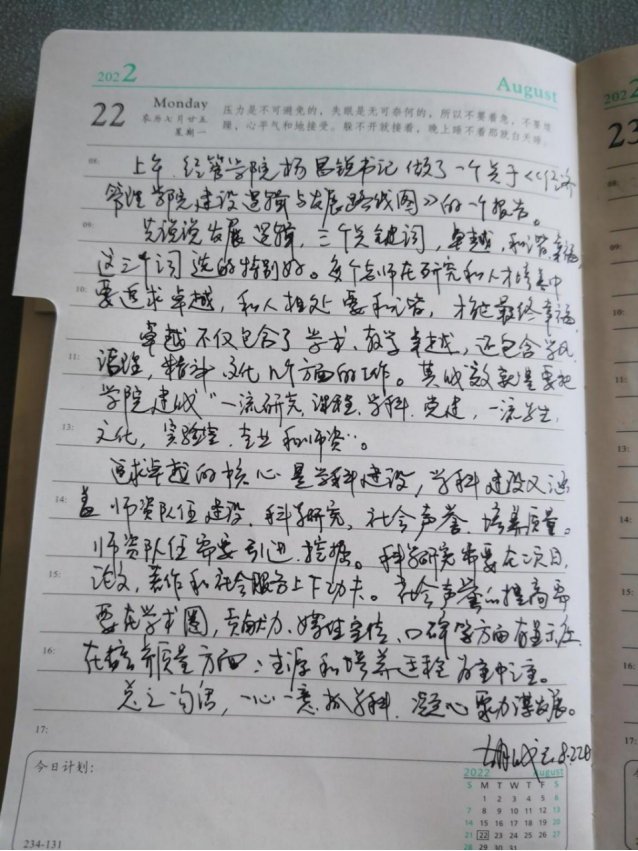 2022
August
22
Monday
农历七月廿五
星期一
压力是不可避免的，失眠是无可奈何的，所以不要着急，不要烦
躁，心平气和地接受。躲不开就接着，晚上睡不着那就白天睡。
08:
上午，经管学院杨昌锐书记做了一个关于《经济
管理学院建设逻辑与发展路线图》的一个报告。
09:
先说说发展逻辑，三个关键词，卓越，和谐，幸福，
这三个词选的特别好。每个老师在研究和人才培养中
10:
要追求卓越，和人相处要和谐，才能最终幸福。
卓越不仅包含了学术、教学卓越，还包含学风
11:
治理，精神文化几个方面的工作。其成效就是要把
学院建成“一流研究、课程、学科、党建，一流学生、
13:
文化，实验室、专业和师资”。
追求卓越的核心是学科建设，学科建设又涵
14:
盖师资队伍建设、科学研究、社会声誉、培养质量。
师资队伍需要引进、挖掘。科学研究需要在项目、
15:
论文，著作和社会服务上下功夫。社会声誉的提高需
要在学术圈，贡献力、口碑等方面有显示度。
16:
在培养质量方面：生源和培养过程为重中之重。
总之一句话，一心一意抓学科，凝心聚力谋发展。
17:
8.22日
今日计划：
2022 August
S M T W T F S
1 2 3 4 5 6
7 8 9 10 11 12 13
14 15 16 17 18 19 20
21 22 23 24 25 26 27
28 29 30 31
234-131
202
23
08:
09:
10:
11:
13:
14:
15:
16:
17: